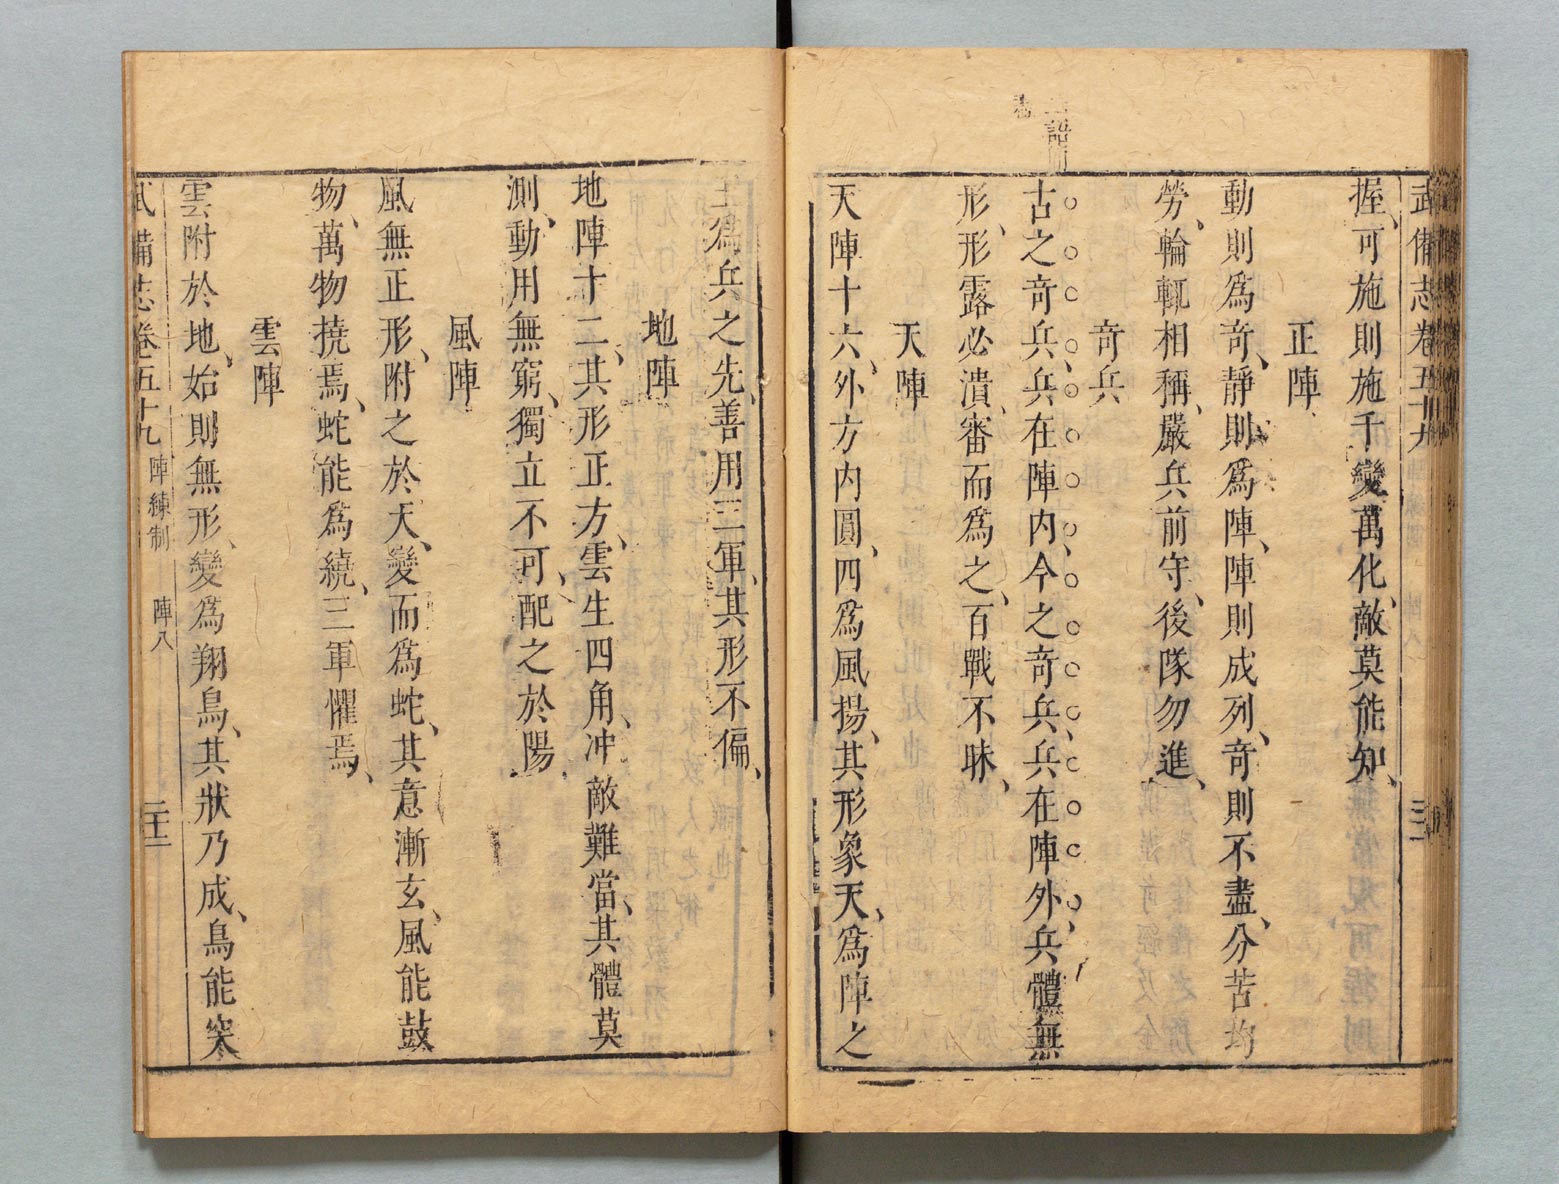 武備志卷五十九
握、可施則施、千變萬化、敵莫能知、
正陣
動則爲奇、靜則爲陣、陣則成列、奇則不盡、分苦均
勞、輪輒相稱、嚴兵前守、後隊勿進、
奇兵
古之奇兵、兵在陣内、今之奇兵、兵在陣外、兵體無
形、形露必潰、審而爲之、百戰不昧、
天陣
天陣十六、外方内圓、四爲風揚、其形象天、爲陣之
主、爲兵之先、善用三軍、其形不偏、
地陣
地陣十二、其形正方、雲生四角、冲敵難當、其體莫
測、動用無窮、獨立不可、配之於陽、
風陣
風無正形、附之於天、變而爲蛇、其意漸玄、風能鼓
物、萬物撓焉、蛇能爲繞、三軍懼焉、
雲陣
雲附於地、始則無形、變爲翔鳥、其狀乃成、鳥能突
武備志卷五十九 陣練制 陣八